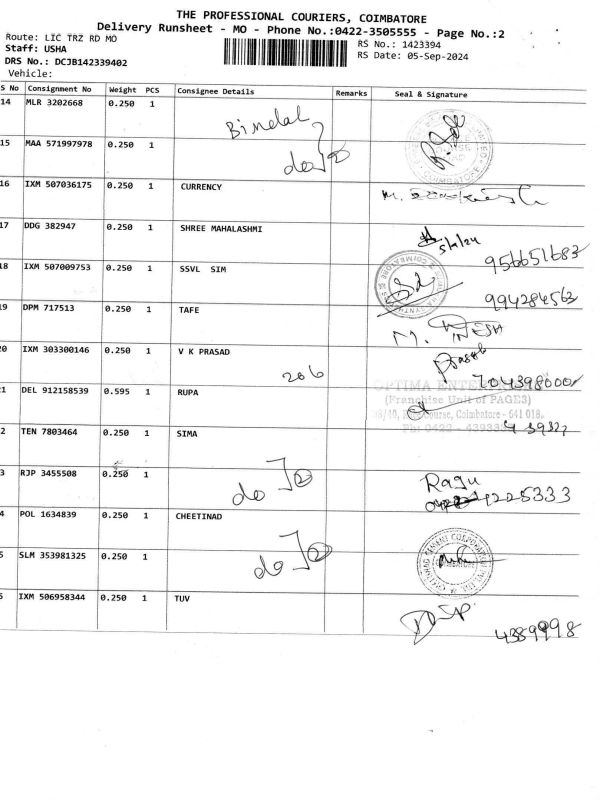 THE PROFESSIONAL COURIERS, COIMBATORE
Delivery Runsheet - MO - Phone No.:0422-3505555 - Page No.:2
Route: LIC TRZ RD MO
RS No.: 1423394
Staff: USHA
RS Date: 05-Sep-2024
DRS No.: DCJB142339402
Vehicle:
S No Consignment No Weight PCS Consignee Details Remarks Seal & Signature
14 MLR 3202668 0.250 1
Bimdal
15 MAA 571997978 0.250 1
do
16 IXM 507036175 0.250 1 CURRENCY
17 DDG 382947 0.250 1 SHREE MAHALASHMI
5/9/24
956651683
18 IXM 507009753 0.250 1 SSVL SIM
994284563
19 DPM 717513 0.250 1 TAFE
M. DINESH
20 IXM 303300146 0.250 1 V K PRASAD
Prasab
206
7043980001
1 DEL 912158539 0.595 1 RUPA
OPTIMA ENTE
(Franchise Unit of PAGE3)
Course, Coimbatore - 641 018.
Ph: 0422 - 43933
2 TEN 7803464 0.250 1 SIMA
3 RJP 3455508 0.250 1
do
Ragu
4225333
4 POL 1634839 0.250 1 CHEETINAD
5 SLM 353981325 0.250 1
do
6 IXM 506958344 0.250 1 TUV
4389998